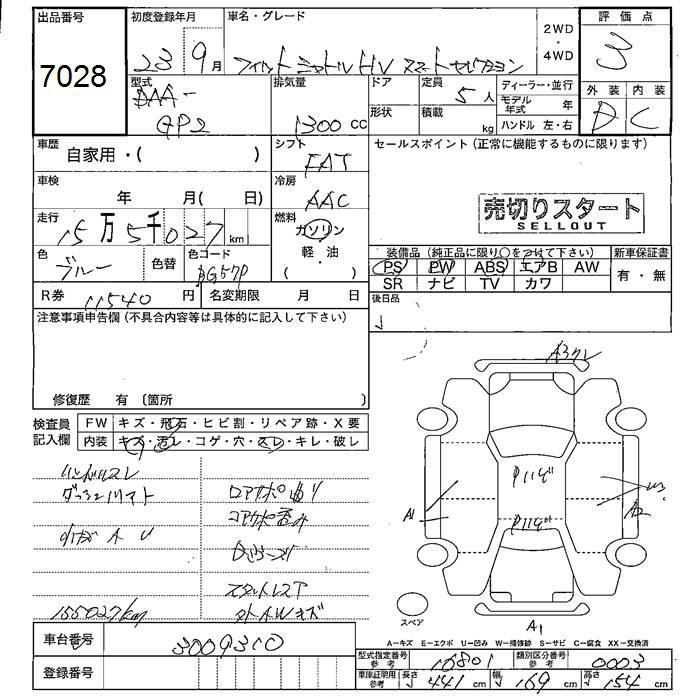 出品番号 7028
初度登録年月 23 9月
車名・グレード フィットシャトルHV スマートセレクション
2WD・4WD
評価点 3
型式 DAA-GP2
排気量 1300cc
ドア 形状
定員 5人
積載 kg
ディーラー・並行
モデル年式 年
ハンドル 左・右
外装 D
内装 C
車歴 自家用・( )
シフト FAT
セールスポイント(正常に機能するものに限ります)
車検 年 月( 日)
冷房 AAC
売切りスタート
SELLOUT
走行 15万5千027km
燃料 ガソリン 軽・油 ( )
色 ブルー
色替
色コード BG57P
装備品(純正品に限り○をつけて下さい)
新車保証書 有・無
PS PW ABS エアB AW
SR ナビ TV カワ
R券 11540円
名変期限 月 日
後日品
注意事項申告欄(不具合内容等は具体的に記入して下さい)
修復歴 有〔箇所 〕
検査員記入欄
FW キズ・飛石・ヒビ割・リペア跡・X要
内装 キズ・汚レ・コゲ・穴・スレ・キレ・破レ
ハンドルスレ
155027km
A1
A2
W3
スペア
A1
A−キズ E−エクボ U−凹み W−補修跡 S−サビ C−腐食 XX−交換済
車台番号 3009310
登録番号
型式指定番号 参考 16801
類別区分番号 参考 0003
車庫証明用 参考 長さ 441cm 幅 169cm 高さ 154cm